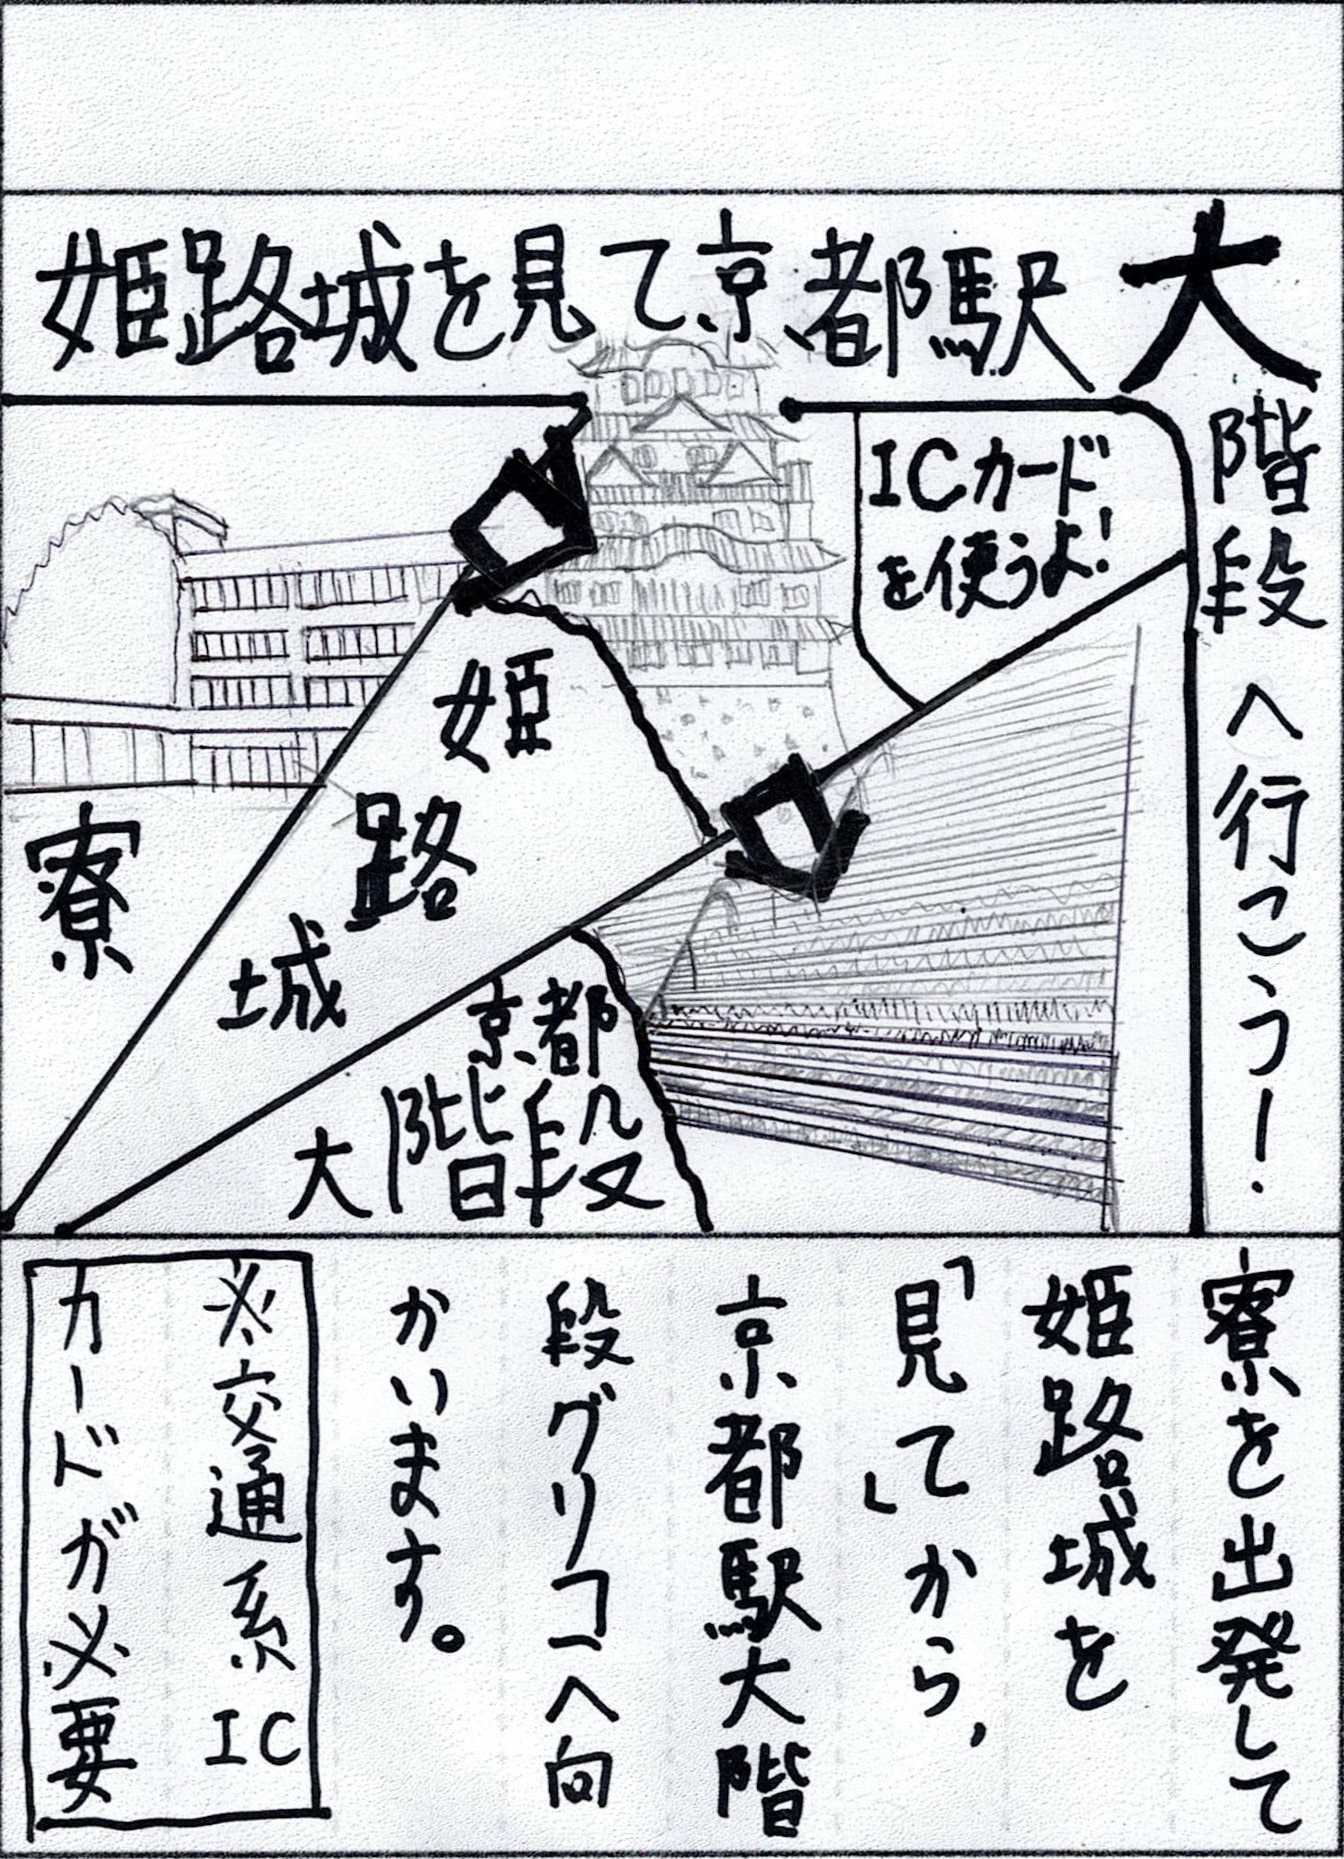 姫路城を見て京都駅大
階段へ行こう！
ICカード
を使うよ！
寮
姫
路
城
京都
大階段
寮を出発して
姫路城を
「見て」から，
京都駅大階
段グリコへ向
かいます。
※交通系IC
カードが必要